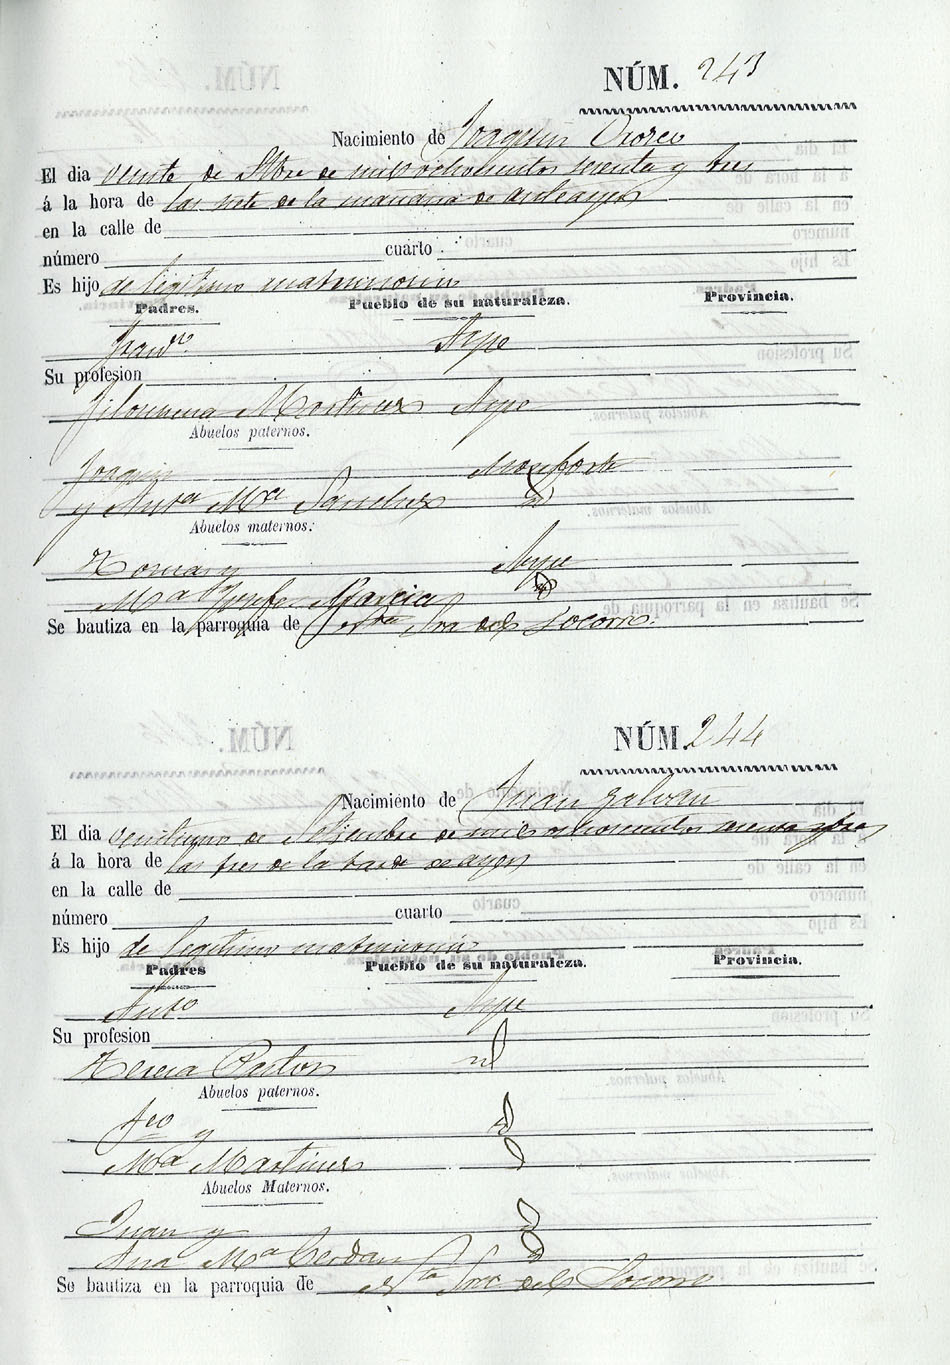 NÚM. 243
Nacimiento de Joaquin
El dia veinte de Stbre de mil ochocientos setenta y tres
á la hora de las siete de la mañana de anteayer
en la calle de
número cuarto
Es hijo de legitimo matrimonio
Padres. Pueblo de su naturaleza. Provincia.
Franco Aspe
Su profesion
Filomena Martinez Aspe
Abuelos paternos.
Joaquin Monforte
y Anta Ma Sanchez id
Abuelos maternos.
Tomas y Aspe
Ma Josefa Garcia id
Se bautiza en la parroquia de Ntra Sra del Socorro.
NÚM. 244
Nacimiento de Juan Galvañ
El dia veintiuno de Setiembre de mil ochocientos setenta y tres
á la hora de las tres de la tarde de ayer
en la calle de
número cuarto
Es hijo de legitimo matrimonio
Padres Pueblo de su naturaleza. Provincia.
Anto Aspe
Su profesion
Teresa Pastor id
Abuelos paternos.
Fco y id
Ma Martinez
Abuelos Maternos.
Juan y id
Ana Ma Cerdan id
Se bautiza en la parroquia de Ntra Sra del Socorro